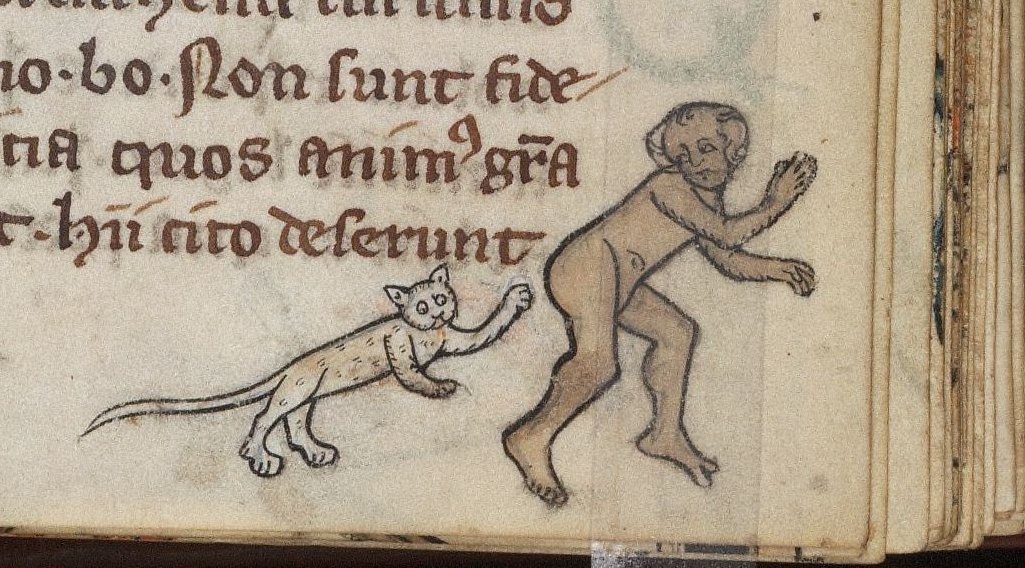 no·bo·Non sunt fide
cia quos animꝰ gr̃a
t·hii cito deserunt